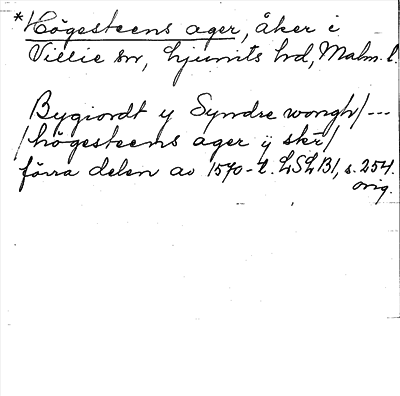 *Högesteens ager, åker i
Villie sn, Ljunits hd, Malm. l.
Bygiordt y Syndre wongh/---
/högesteens ager ÿ skr̄/
förra delen av 1570-t. LSLB1, s. 254.
orig.